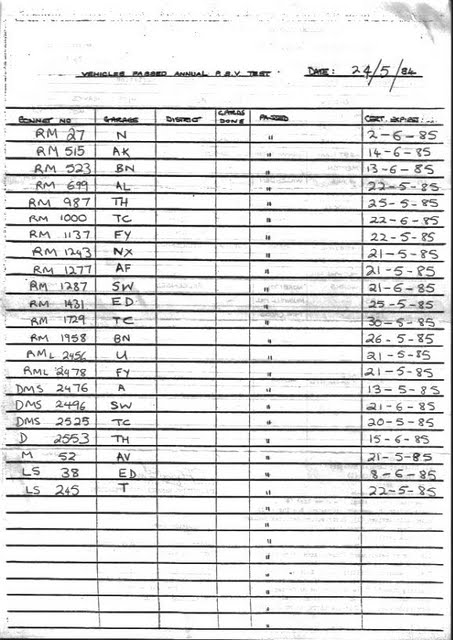 VEHICLES PASSED ANNUAL P.S.V TEST DATE: 24/5/84
BONNET NO GARAGE DISTRICT CARDS DONE PASSED CERT. EXPIRES:
RM 27 N " 2-6-85
RM 515 AK " 14-6-85
RM 523 BN " 13-6-85
RM 699 AL " 22-5-85
RM 987 TH " 25-5-85
RM 1000 TC " 22-6-85
RM 1137 FY " 22-5-85
RM 1243 NX " 21-5-85
RM 1277 AF " 21-5-85
RM 1287 SW " 21-6-85
RM 1431 ED " 25-5-85
RM 1729 TC " 30-5-85
RM 1958 BN " 26-5-85
RML 2456 U " 21-5-85
RML 2478 FY " 21-5-85
DMS 2476 A " 13-5-85
DMS 2496 SW " 21-6-85
DMS 2525 TC " 20-5-85
D 2553 TH " 15-6-85
M 52 AV " 21-5-85
LS 38 ED " 8-6-85
LS 245 T " 22-5-85
"
"
"
"
"
"
"
"